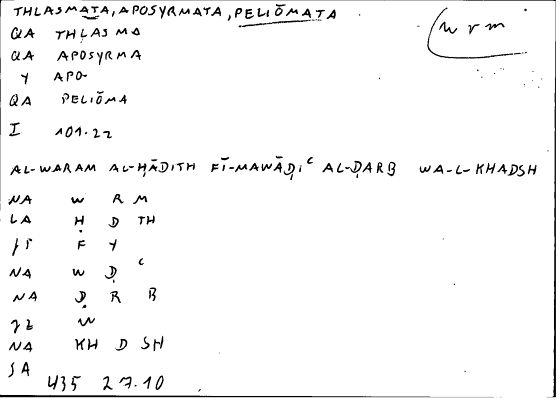 THLASMATA, APOSYRMATA, PELIŌMATA
wrm
QA THLASMA
QA APOSYRMA
Y APO-
QA PELIŌMA
I 101.22
AL-WARAM AL-ḤĀDITH FĪ-MAWĀḌIᶜ AL-ḌARB WA-L-KHADSH
NA W R M
LA Ḥ D TH
F Y
NA W Ḍ ᶜ
NA Ḍ R B
W
NA KH D SH
SA
435 27.10